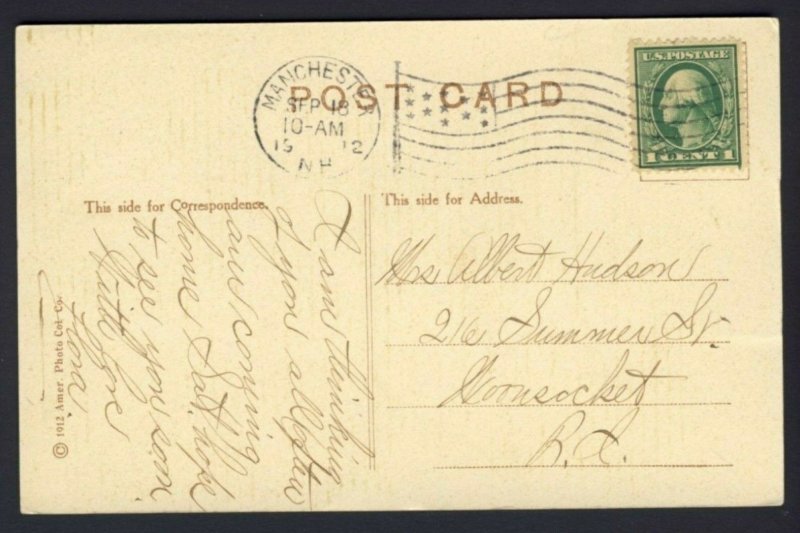 POST CARD
MANCHESTER
SEP 18
10-AM
1912
N.H.
U.S. POSTAGE
1 CENT 1
This side for Correspondence.
This side for Address.
I am thinking
of you all often
am coming
home Sat. hope
to see you soon.
With love
Flora.
Mrs Albert Hudson
216 Summer St.
Woonsocket
R. I.
© 1912 Amer. Photo Col Co.